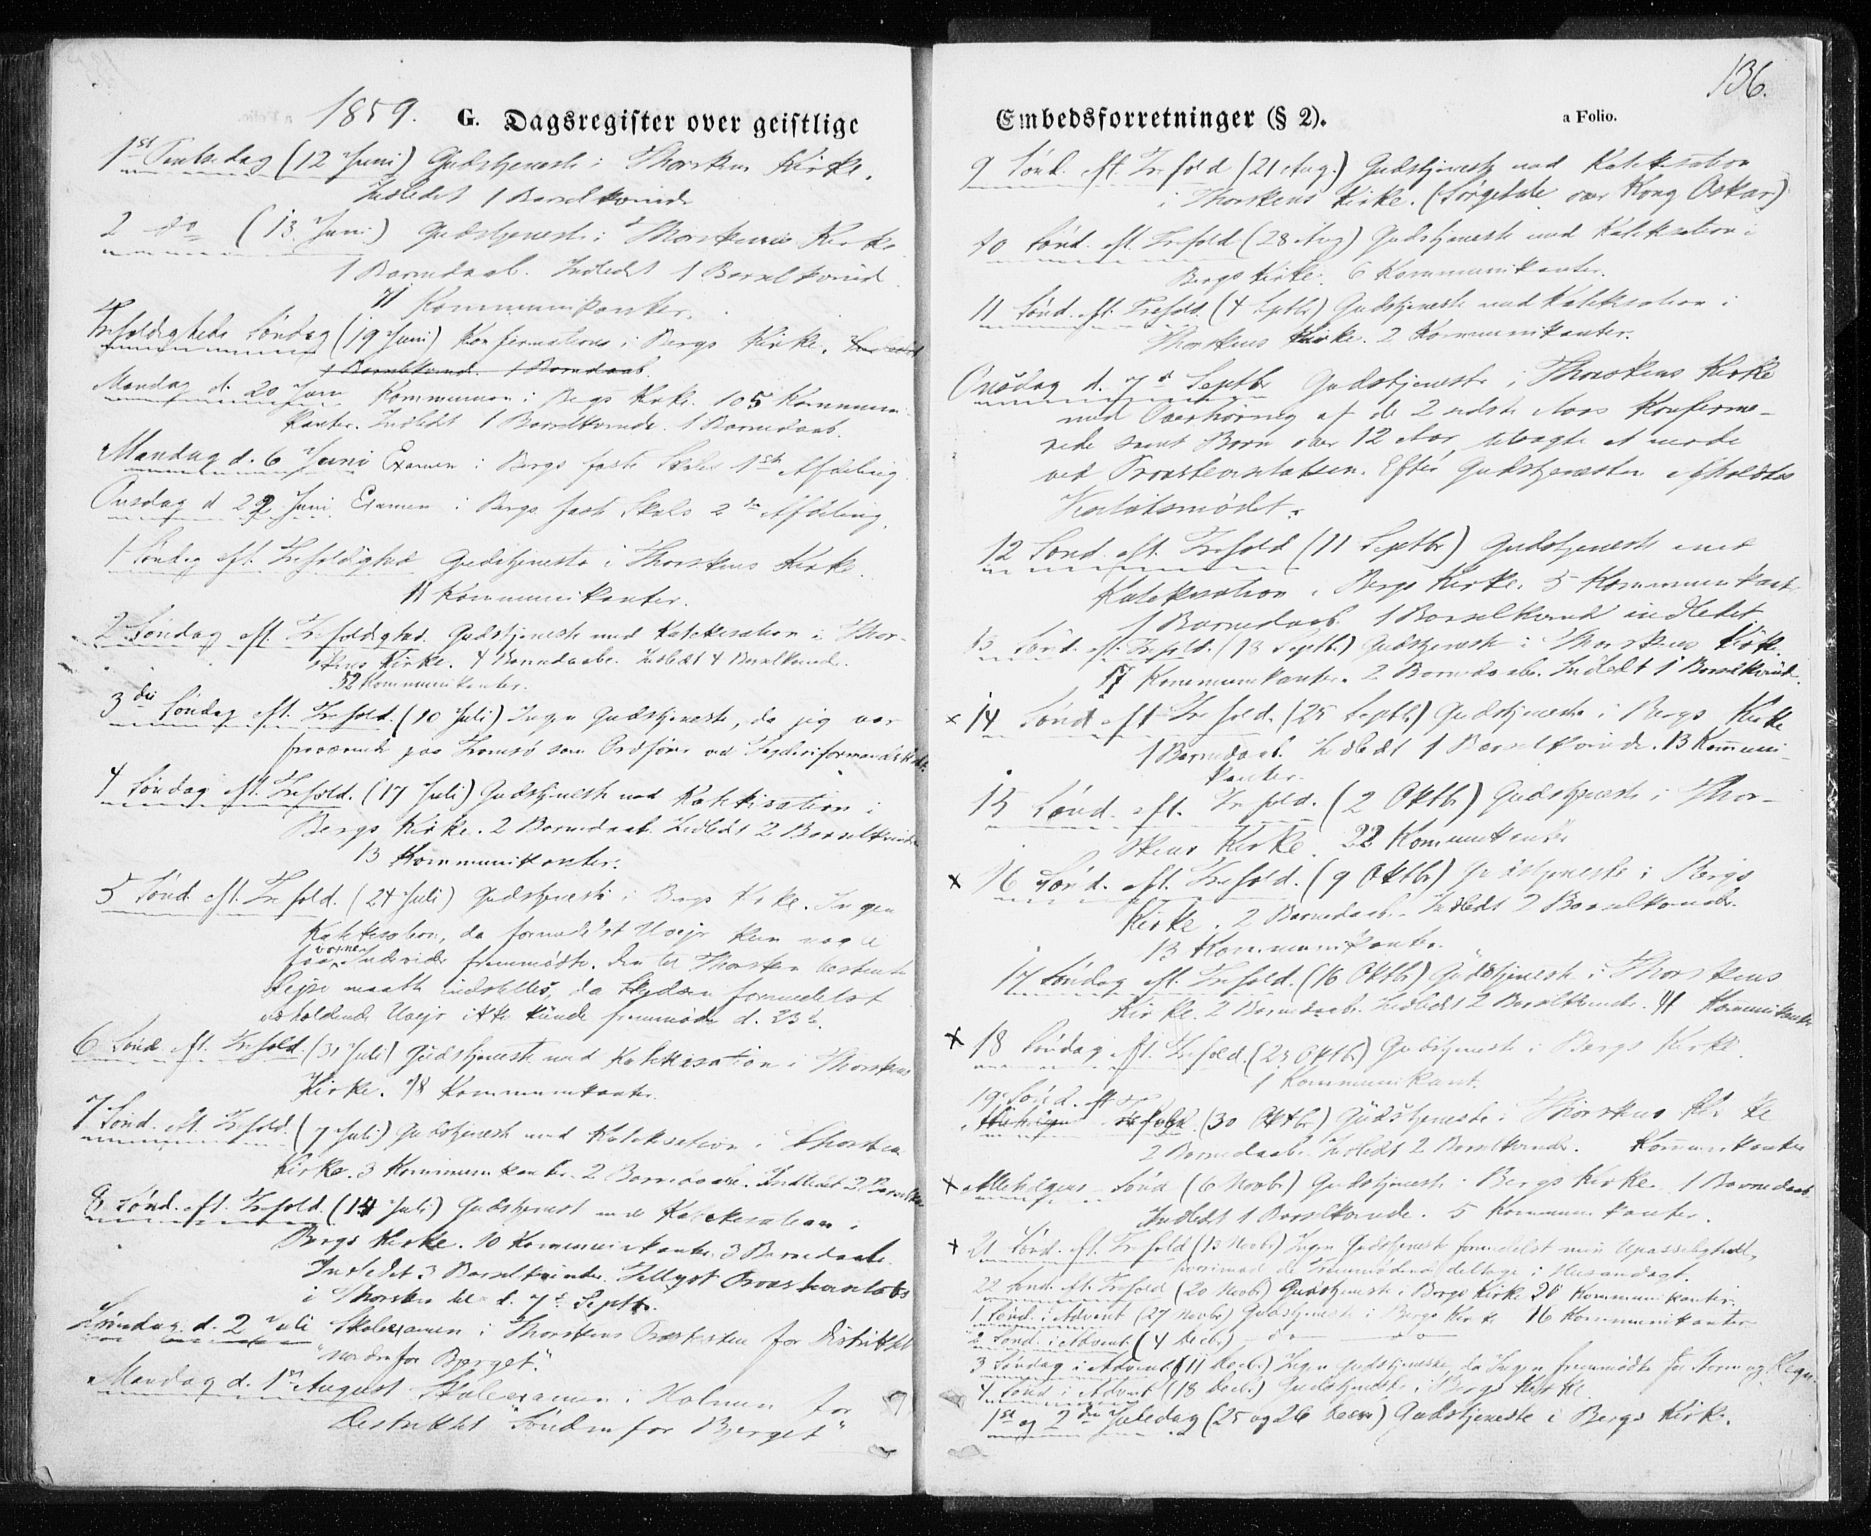 1859. G. Dagsregister over geistlige
1st Pintsedag (12 Juni) Gudstjeneste i Thorskens Kirke.
Indledet 1 Barselkvinde
2 do (13 Juni) Gudstjeneste i Thorskens Kirke
1 Barnedaab. Indledt 1 Barselkvind.
71 Kommunikanter.
Trefoldigheds Søndag (19 Juni) Konfirmations i Bergs Kirke.
1 Barselkvind. 1 Barnedaab.
Mandag d. 20 Juni Kommunion i Bergs Kirke. 105 Kommuni-
kanter. Indledt 1 Barselkvinde. 1 Barnedaab.
Mandag d. 6 Juni Examen i Bergs faste Skoles 1ste Afdeling
Onsdag d 22 Juni Examen i Bergs faste Skoles 2den Afdeling.
1 Søndag eft. Trefoldighed Gudstjeneste i Thorskens Kirke.
11 Kommunikanter.
2 Søndag eft. Trefoldighed. Gudstjeneste med Katekisation i Thor-
skens Kirke. 4 Barnedaabe. Indledt 4 Barselkvinde.
52 Kommunikanter.
3die Søndag eft. Trefold. (10 Juli) Ingen Gudstjeneste, da jeg var
fraværende paa Tromsø som Ordfører ved
4 Søndag eft. Trefold. (17 Juli) Gudstjeneste med Katekisation i
Bergs Kirke. 2 Barnedaab. Indledt 2 Barselkvinder
13 Kommunikanter.
5 Sønd. eft. Trefold. (24 Juli) Gudstjeneste i Bergs Kirke. Ingen
Katekisation, da formedelst Uveir kun
faa voxne Individer fremmødte. Den til Thorsken bestemte
Reise maatte indstilles, da Skydsen formedelst
vedholdende Uveir ikke kunde fremmøde d. 23de.
6 Sønd eft. Trefold. (31 Juli) Gudstjeneste med Katekisation i Thorskens
Kirke. 48 Kommunikanter.
7 Sønd. eft. Trefold. (7 Juli) Gudstjeneste med Katekisation i Thorsken
Kirke. 3 Kommunikanter. 2 Barnedaabe. Indledet 2 Barselkv.
8 Sønd. eft. Trefold. (14 Juli) Gudstjenest med Katekesation i
Bergs Kirke. 10 Kommunikanter. 3 Barnedaabe.
Indledet 3 Barselkvinder. Tillyst Provstevisitats
i Thorsken til d. 7de Septbr.
Søndag d. 2 Juli Skolexamen i Thorskens Præstesten for Distriktet
"nordenfor Bjerget".
Mandag d. 1ste August Skolexamen i Holmen for
Distriktet "Søndenfor Bjerget"
136.
Embedsforretninger (§ 2). a Folio.
9 Sønd. eft. Trefold (21 Aug.) Gudstjeneste med Katekisation
i Thorskens Kirke. (Sørgetale over Kong Oskar)
10 Sønd. eft. Trefold (28 Aug) Gudstjeneste med Katekisation i
Bergs Kirke. 6 Kommunikanter.
11 Sønd. eft. Trefold. (4 Septbr) Gudstjeneste med Katekisation i
Thorskens Kirke. 2 Kommunikanter.
Onsdag d. 7de Septbr Gudstjeneste i Thorskens Kirke
med Overhøring af de 2 sidste Aars Konfirme-
rede samt Børn over 12 Aar, tilsagte at møde
ved Provstevisitatsen. Efter Gudstjenesten afholdtes
Visitatsmødet.
12 Sønd. eft. Trefold (11 Septbr) Gudstjeneste med
Katekisation i Bergs Kirke. 5 Kommunikant.
1 Barnedaab. 1 Barselkvind indledet
13 Sønd. eft. Trefold. (18 Septbr) Gudstjeneste i Thorskens Kirke.
17 Kommunikanter. 2 Barnedaabe. Indledt 1 Barselkvind.
x 14 Sønd eft Trefold. (25 Septbr) Gudstjeneste i Bergs Kirke
1 Barnedaab. Indledt 1 Barselkvinde. 13 Kommuni-
kanter.
15 Sønd. eft. Trefold. (2 Oktbr) Gudstjeneste i Thor-
skens Kirke. 22 Kommunikanter
x 16 Sønd. eft. Trefold. (9 Oktbr) Gudstjeneste i Bergs
Kirke. 2 Barnedaab. Indledt 2 Barselkvinder.
13 Kommunikanter.
17 Søndag eft. Trefold. (16 Oktbr) Gudstjeneste i Thorskens
Kirke. 2 Barnedaab. Indledt 2 Barselkvinde. 41 Kommunikanter
x 18 Søndag eft. Trefold. (23 Oktbr) Gudstjeneste i Bergs Kirke.
1 Kommunikant.
19 Sønd. eft Tr
(30 Oktbr) Gudstjeneste i Thorskens Kirke
2 Barnedaab. Indledt 2 Barselkvinder. Kommunikanter
x Allehelgens Sønd (6 Novbr) Gudstjeneste i Bergs Kirke. 1 Barnedaab
Indledt 1 Barselkvinde. 5 Kommunikanter.
x 21 Sønd. eft. Trefold (13 Novbr) Ingen Gudstjeneste formedelst min Upasselighed,
hvorimod de Fremmødende deltoge i Husandagt.
22 Sønd. eft. Trefold (20 Novbr) Gudstjeneste i Bergs Kirke 20 Kommunikanter.
1 Sønd. i Advent (27 Novbr) Gudstjeneste i Bergs Kirke 16 Kommunikanter
2 Sønd. i Advent (4 Decbr) - do - do
3 Søndag i Advent (11 Decbr) Ingen Gudstjeneste, da Ingen fremmødte for Storm og Regn.
4 Sønd i Advent (18 Decbr) Gudstjeneste i Bergs Kirke
1st og 2den Juledag (25 og 26 Decbr) Gudstjeneste i Bergs Kirke.